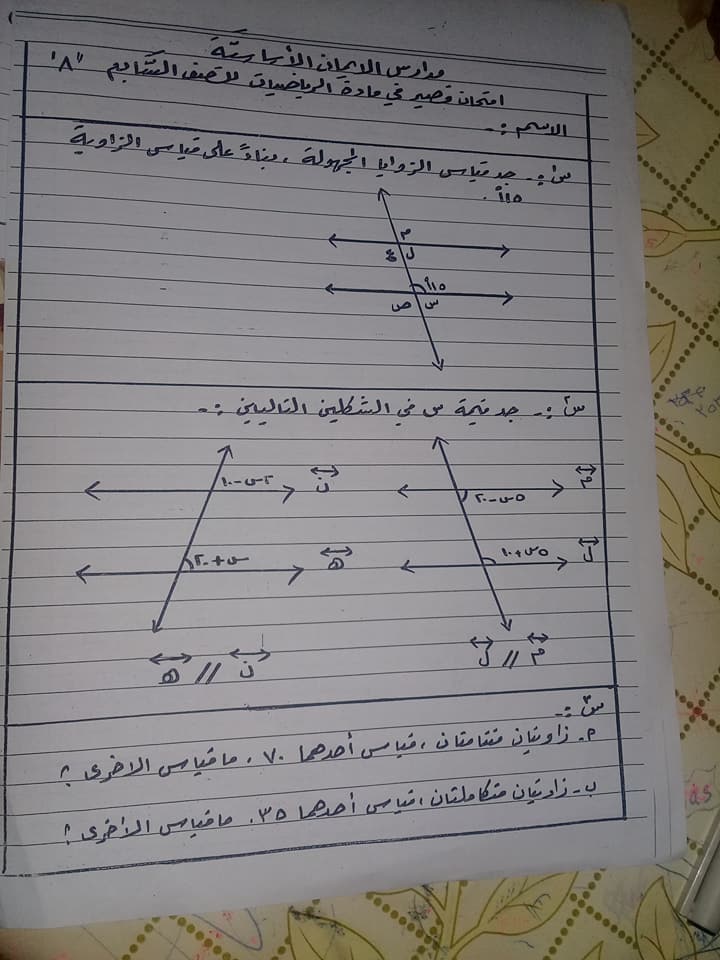 مدارس الإيمان الأساسيّة
امتحان قصير في مادة الرياضيات للصف السّابع "٨"
الاسم :-
س١:- جد قياس الزوايا المجهولة ، بناءً على قياس الزاوية
١١٥°.
م
ل ع
١١٥°
س ص
س٢:- جد قيمة س في الشكلين التاليين :-
م
٥س-٢٠
ل
٥س+١٠
م // ل
ن
٢س-١٠
هـ
س+٢٠
ن // هـ
س٣:-
م- زاويتان متتامتان ، قياس أحدهما ٧٠ ، ما قياس الاخرى ؟
ب- زاويتان متكاملتان ، قياس أحدهما ٣٥. ما قياس الأخرى ؟